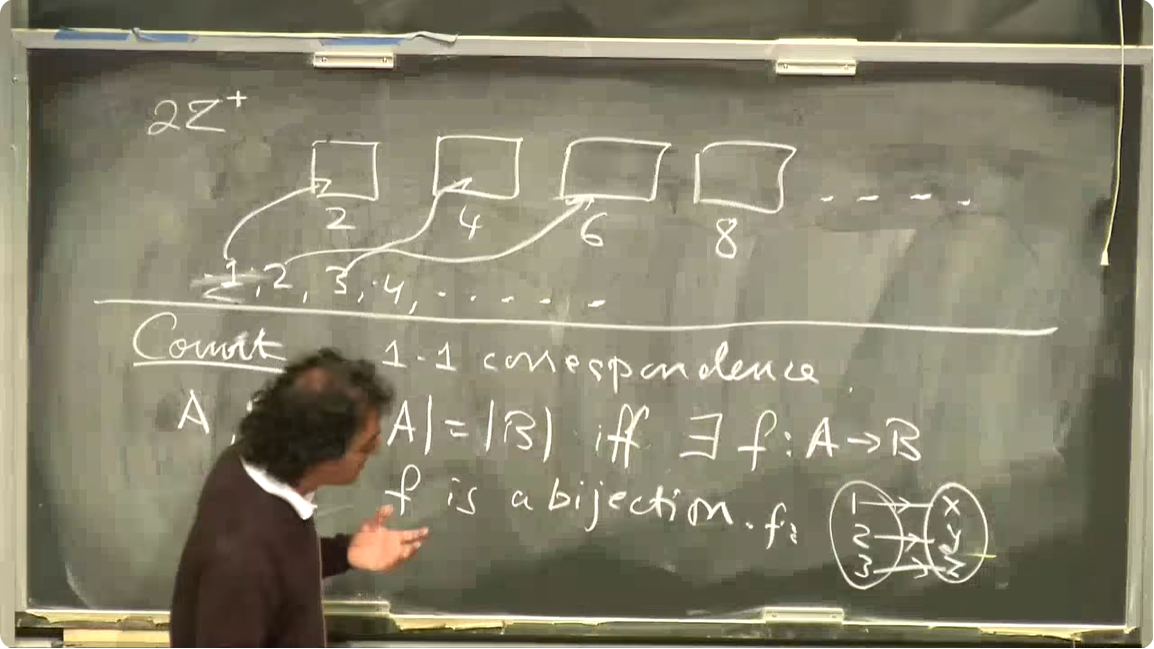 2Z⁺
2 4 6 8 - - - -
1, 2, 3, 4, . . . . . -
Count 1-1 correspondence.
A, A| = |B| iff ∃ f: A → B
f is a bijection. f:
1 x
2 y
3 z